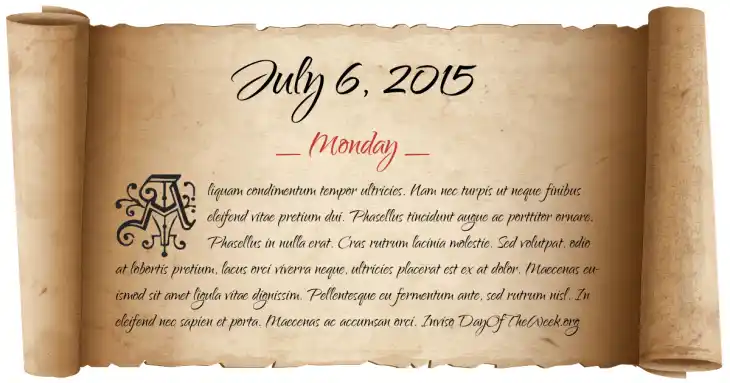 July 6, 2015
— Monday —
Aliquam condimentum tempor ultricies. Nam nec turpis ut neque finibus
eleifend vitae pretium dui. Phasellus tincidunt augue ac porttitor ornare.
Phasellus in nulla erat. Cras rutrum lacinia molestie. Sed volutpat, odio
at lobortis pretium, lacus orci viverra neque, ultricies placerat est ex at dolor. Maecenas eu-
ismod sit amet ligula vitae dignissim. Pellentesque eu fermentum ante, sed rutrum nisl. In
eleifend nec sapien et porta. Maecenas ac accumsan orci. Inviso DayOfTheWeek.org